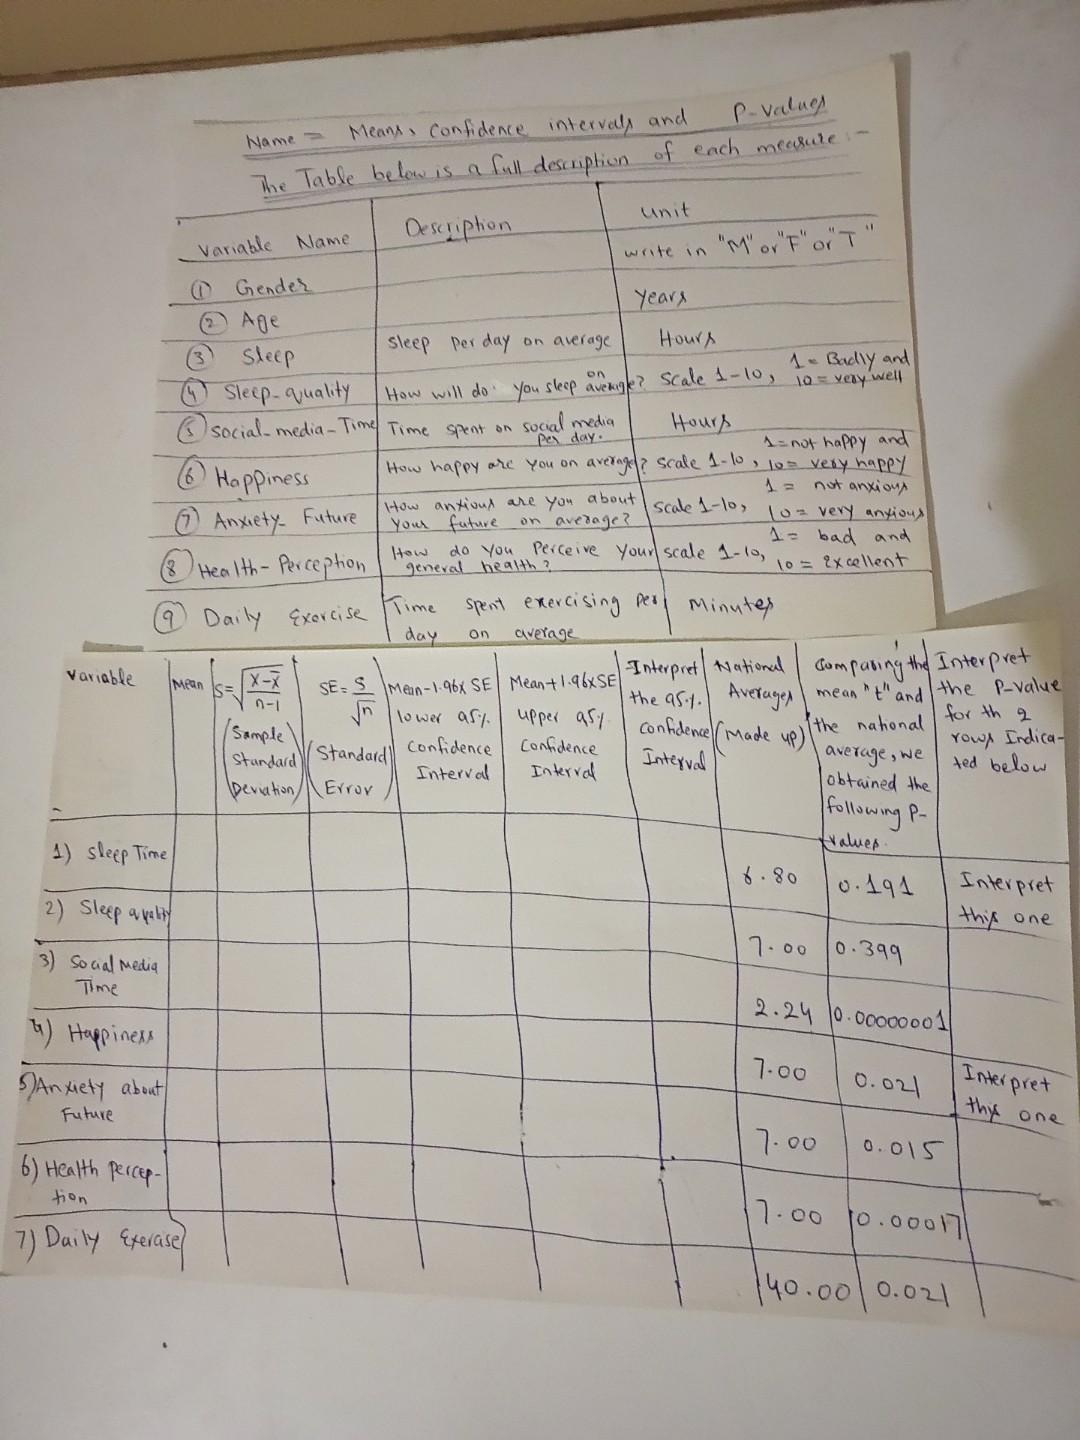 Name = Means, Confidence intervals and P-values
The Table below is a full description of each measure :-
Variable Name Description unit
write in "M" or "F" or "T"
① Gender
② Age Years
③ Sleep Sleep Per day on average Hours
④ Sleep-quality How will do you sleep on average? Scale 1-10, 1 = Badly and 10 = very well
⑤ Social-media-Time Time spent on social media Per day. Hours
⑥ Happiness How happy are you on average? Scale 1-10, 1 = not happy and 10 = very happy
⑦ Anxiety- Future How anxious are you about your future on average? scale 1-10, 1 = not anxious 10 = very anxious
⑧ Health-Perception How do you Perceive your general health? scale 1-10, 1 = bad and 10 = Excellent
⑨ Daily Exercise Time spent exercising Per day on average Minutes
Variable
Mean
S = √(X-X̄ / n-1)
(Sample
Standard
Deviation)
SE = S/√n
(Standard
Error)
Mean-1.96x SE
lower 95%
Confidence
Interval
Mean+1.96xSE
upper 95%
Confidence
Interval
Interpret
the 95%
Confidence
Interval
National
Averages
(Made up)
Comparing the
mean "t" and
the national
average, we
obtained the
following P-
values.
Interpret
the P-value
for th 2
rows Indica-
ted below
1) Sleep Time 6.80 0.191 Interpret this one
2) Sleep quality 7.00 0.399
3) Social Media Time 2.24 0.00000001
4) Happiness 7.00 0.021 Interpret this one
5) Anxiety about Future 7.00 0.015
6) Health percep-tion 7.00 0.00017
7) Daily Exercise 40.00 0.021